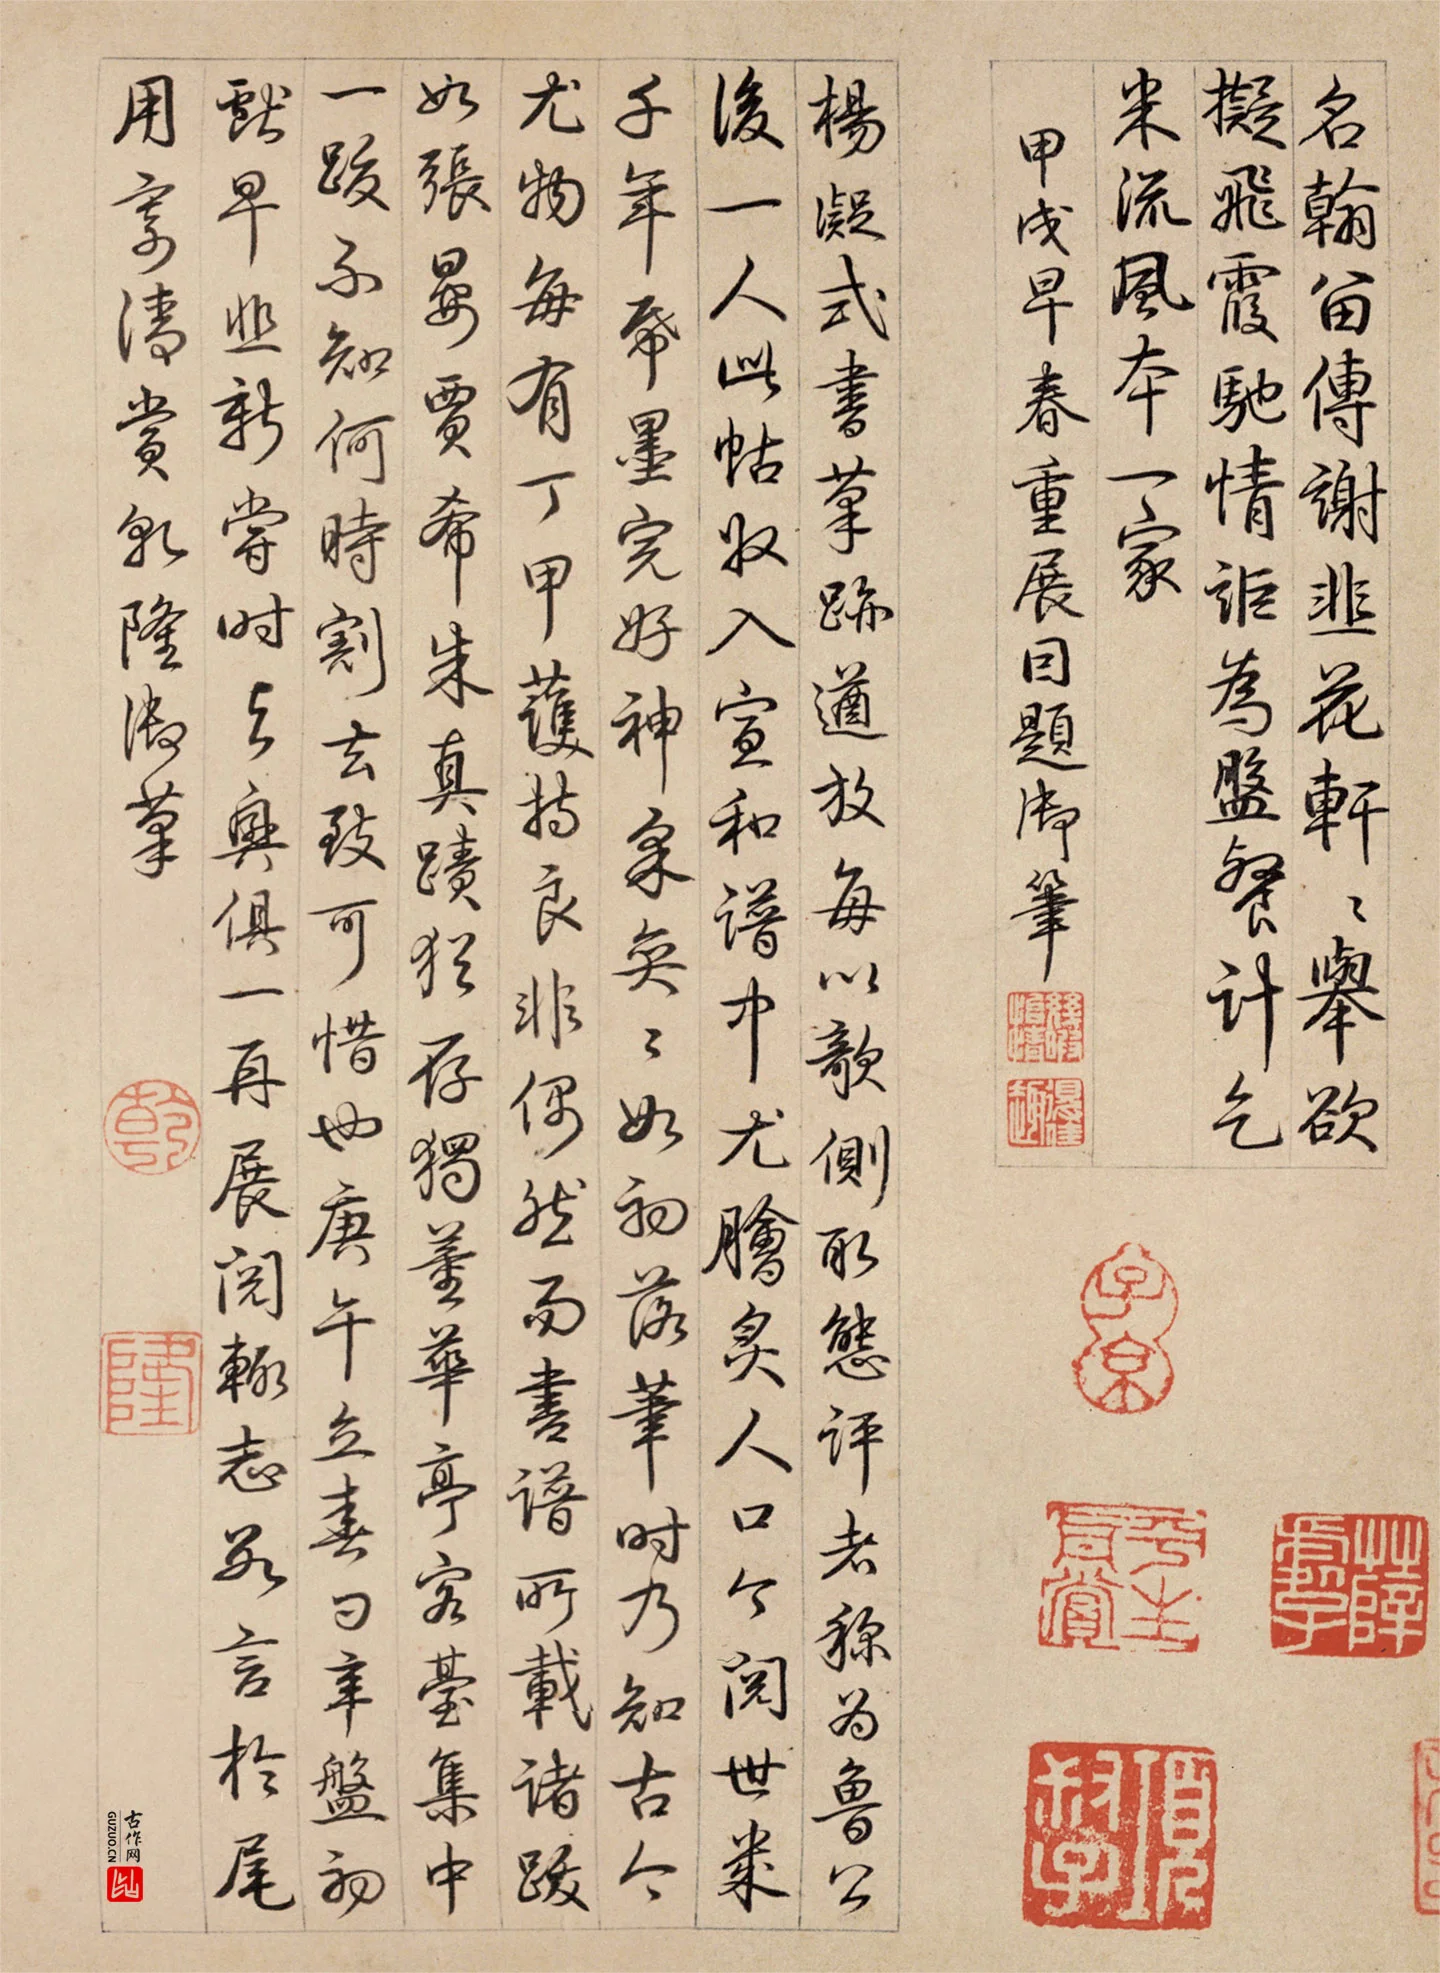 名翰留傳謝韭花軒〻舉欲
擬飛霞馳情詎為盤餐計乞
米流風本一家
甲戌早春重展因題御筆
楊凝式書草跡遒放每以欹側取態評者稱為魯公
後一人此帖收入宣和譜中尤膾炙人口今閱世幾
千年紙墨完好神采奕〻如初落筆時乃知古今
尤物每有丁甲護持良非偶然而書譜所載諸跋
如張晏賈希朱真蹟猶存獨董華亭容臺集中
一跋不知何時割去致可惜也庚午立春日辛盤初
獻早韭新嘗時與興俱一再展閱輒志數言於尾
用寄清賞乾隆御筆
乾
隆
子京
古作网
GUZUO.CN